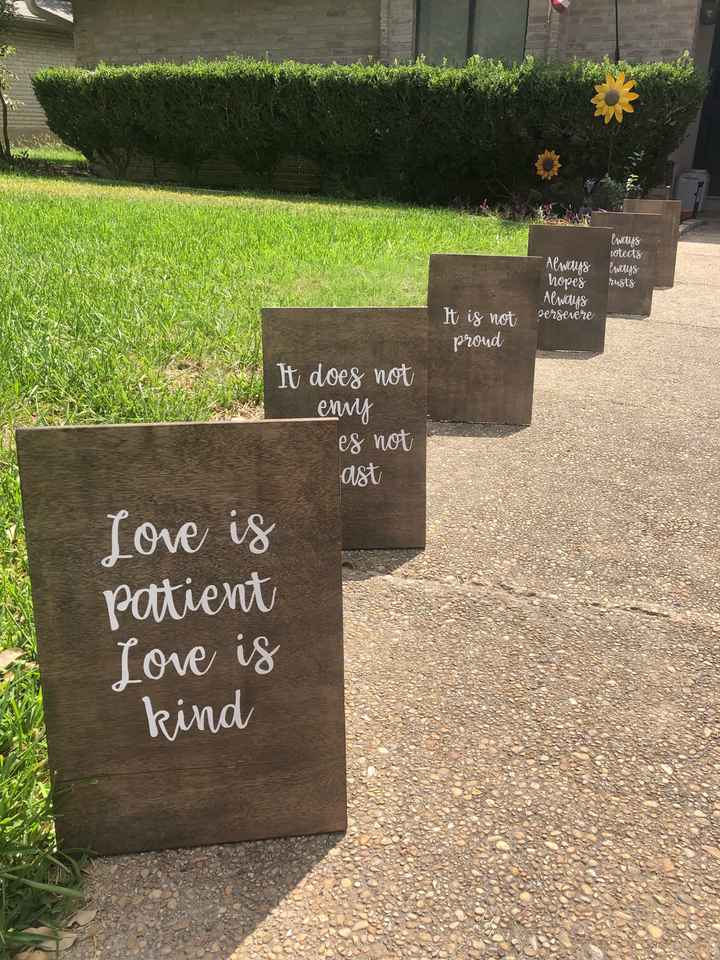 Love is
patient
Love is
kind
It does not
envy
es not
ast
It is not
proud
Always
hopes
Always
persevere
lways
rotects
lways
rusts